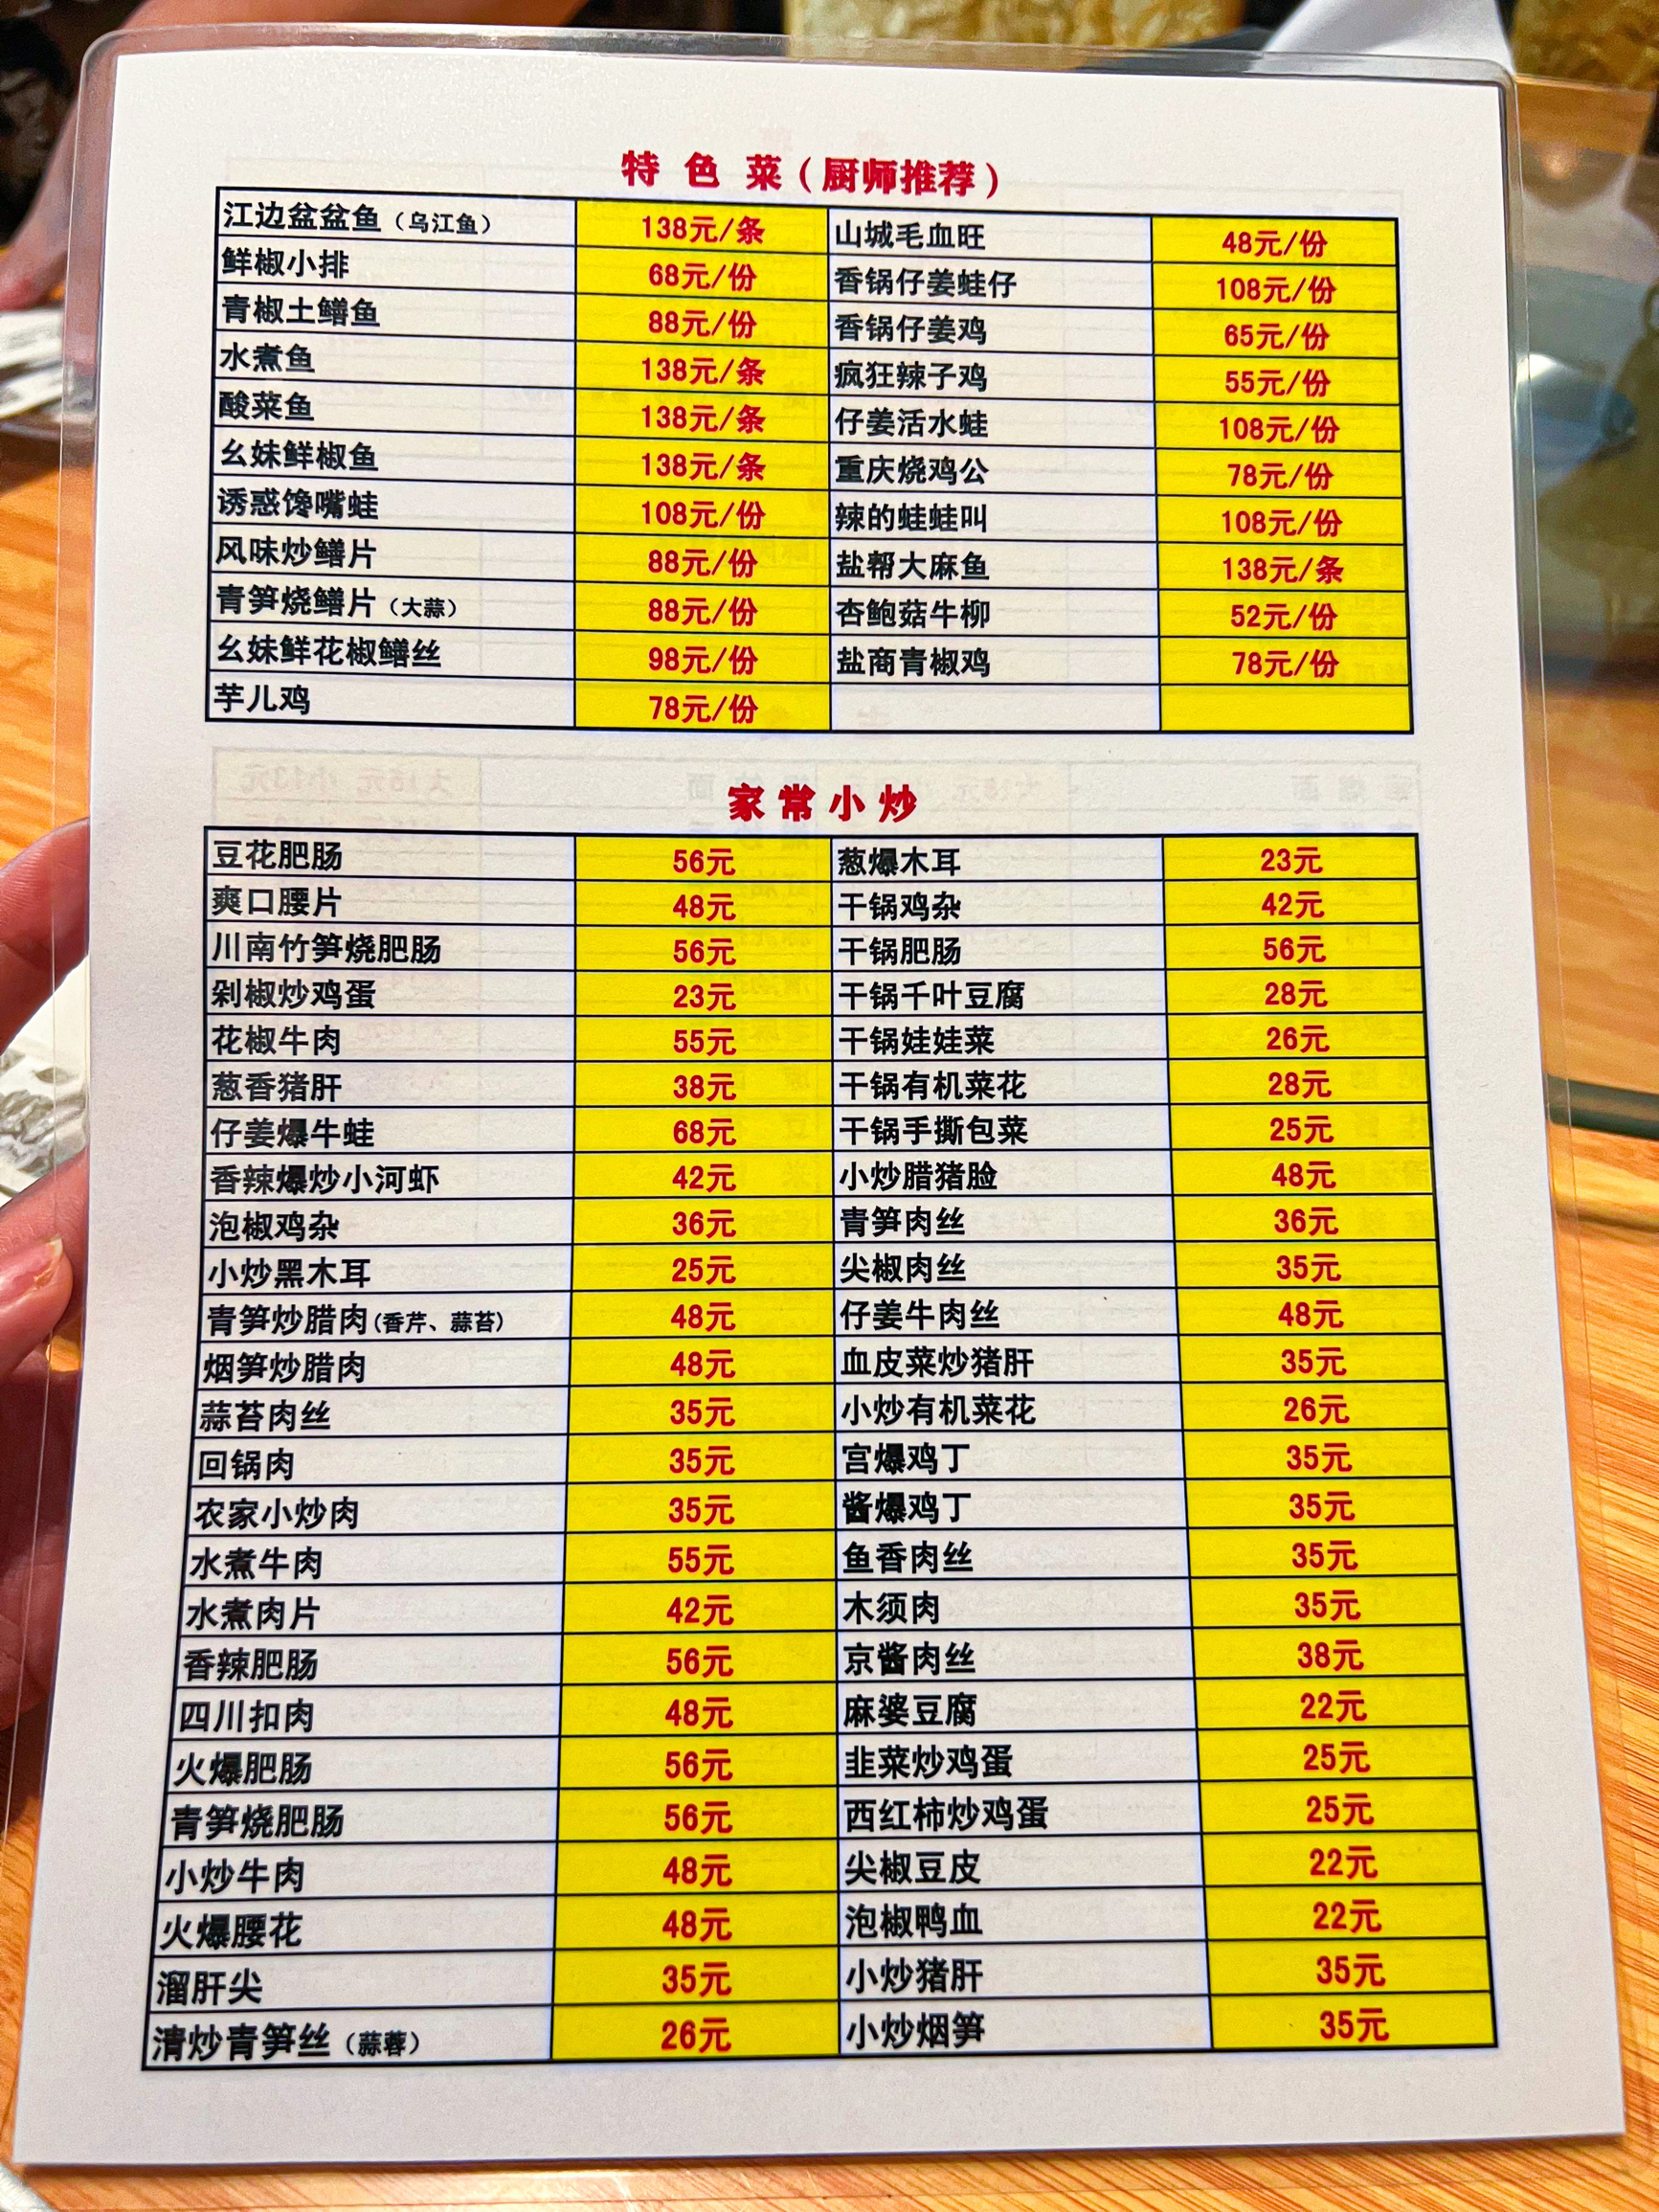 特色菜（厨师推荐）
江边盆盆鱼（乌江鱼） 138元/条 山城毛血旺 48元/份
鲜椒小排 68元/份 香锅仔姜蛙仔 108元/份
青椒土鳝鱼 88元/份 香锅仔姜鸡 65元/份
水煮鱼 138元/条 疯狂辣子鸡 55元/份
酸菜鱼 138元/条 仔姜活水蛙 108元/份
幺妹鲜椒鱼 138元/条 重庆烧鸡公 78元/份
诱惑馋嘴蛙 108元/份 辣的蛙蛙叫 108元/份
风味炒鳝片 88元/份 盐帮大麻鱼 138元/条
青笋烧鳝片（大蒜） 88元/份 杏鲍菇牛柳 52元/份
幺妹鲜花椒鳝丝 98元/份 盐商青椒鸡 78元/份
芋儿鸡 78元/份
家常小炒
豆花肥肠 56元 葱爆木耳 23元
爽口腰片 48元 干锅鸡杂 42元
川南竹笋烧肥肠 56元 干锅肥肠 56元
剁椒炒鸡蛋 23元 干锅千叶豆腐 28元
花椒牛肉 55元 干锅娃娃菜 26元
葱香猪肝 38元 干锅有机菜花 28元
仔姜爆牛蛙 68元 干锅手撕包菜 25元
香辣爆炒小河虾 42元 小炒腊猪脸 48元
泡椒鸡杂 36元 青笋肉丝 36元
小炒黑木耳 25元 尖椒肉丝 35元
青笋炒腊肉(香芹、蒜苔) 48元 仔姜牛肉丝 48元
烟笋炒腊肉 48元 血皮菜炒猪肝 35元
蒜苔肉丝 35元 小炒有机菜花 26元
回锅肉 35元 宫爆鸡丁 35元
农家小炒肉 35元 酱爆鸡丁 35元
水煮牛肉 55元 鱼香肉丝 35元
水煮肉片 42元 木须肉 35元
香辣肥肠 56元 京酱肉丝 38元
四川扣肉 48元 麻婆豆腐 22元
火爆肥肠 56元 韭菜炒鸡蛋 25元
青笋烧肥肠 56元 西红柿炒鸡蛋 25元
小炒牛肉 48元 尖椒豆皮 22元
火爆腰花 48元 泡椒鸭血 22元
溜肝尖 35元 小炒猪肝 35元
清炒青笋丝（蒜蓉） 26元 小炒烟笋 35元